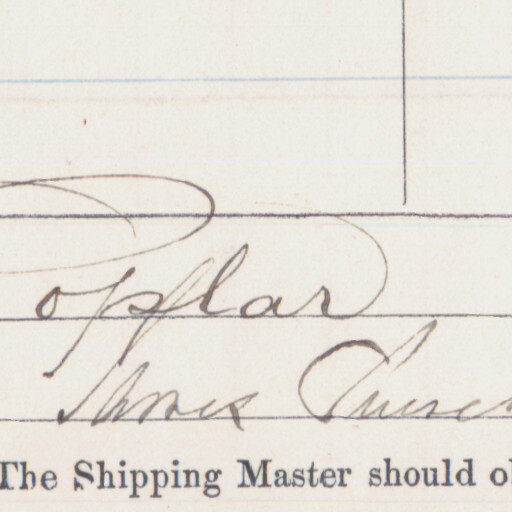 Poplar
James
The Shipping Master should ob